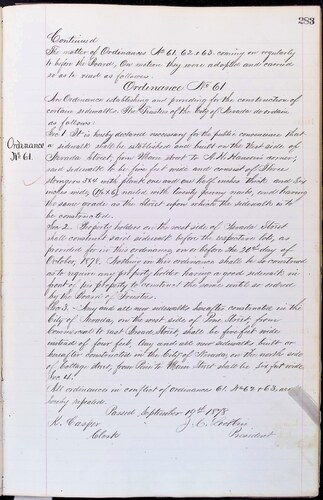 283
Continued
The matter of Ordinances No 61, 62 & 63, coming on regularly
to before the Board, On motion they were adopted and carried
so as to read as follows.
Ordinance No 61
Ordinance
No 61.
An Ordinance establishing and providing for the construction of
certain sidewalks. The Trustees of the City of Nevada do ordain
as follows:
Sec. 1 It is hereby declared necessary for the public convenience that
a sidewalk shall be established and built on the West side of
Nevada Street, from Main Street to
said sidewalk to be five feet wide and consist of three
stringers 3x4 with plank one and one half inches thick and six
inches wide, (1½ x 6) nailed with twenty penny nails, and having
the same grade as the Street upon which the sidewalk is to
be constructed.
Sec. 2. Property holders on the west side of Nevada Street
shall construct said sidewalk before the respective lots, as
provided for in this ordinance, on or before the 20th day of
October, 1878. Nothing in this ordinance shall be so construed
as to require any property holder having a good sidewalk in
front of his property to construct the same until so ordered
by the Board of Trustees.
Sec. 3 - Any and all new sidewalks hereafter constructed in the
City of Nevada, on the west side of Pine Street, from
Commercial to east Broad Street, shall be five feet wide
instead of four feet, Any and all new sidewalks built or
hereafter constructed in the City of Nevada, on the north side
of Cottage Street, from Pine to Main Street shall be six feet wide
Sec. 4.
All ordinances in conflict of ordinances 61, No 62 & 63, are
hereby repealed.
Passed, September 19th 1878
Casper
Clerk
President